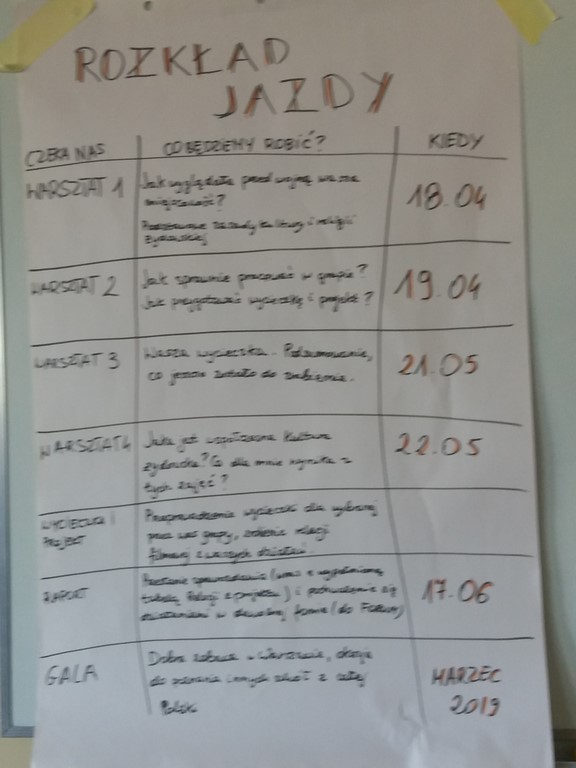 ROZKŁAD
JAZDY
CZEKA NAS
CO BĘDZIEMY ROBIĆ?
KIEDY
WARSZTAT 1
Jak wyglądała przed wojną wasza
miejscowość?
Podstawowe zasady kultury i religii
żydowskiej
18.04
WARSZTAT 2
Jak sprawnie pracować w grupie?
Jak przygotować wycieczkę i projekt?
19.04
WARSZTAT 3
Wasza wycieczka. Podsumowanie,
co jeszcze zostało do zrobienia.
21.05
WARSZTAT 4
Jaka jest współczesna kultura
żydowska? Co dla mnie wynika z
tych zajęć?
22.05
WYCIECZKA I
PROJEKT
Przeprowadzenie wycieczki dla wybranej
przez was grupy, zrobienie relacji
filmowej z waszych działań.
RAPORT
sprawozdania (wraz z wypełnioną
z projektu) i się
działaniami w dowolnej formie (do
17.06
GALA
Dobra zabawa w Warszawie, okazja
do poznania innych szkół z całej
Polski
MARZEC
2019